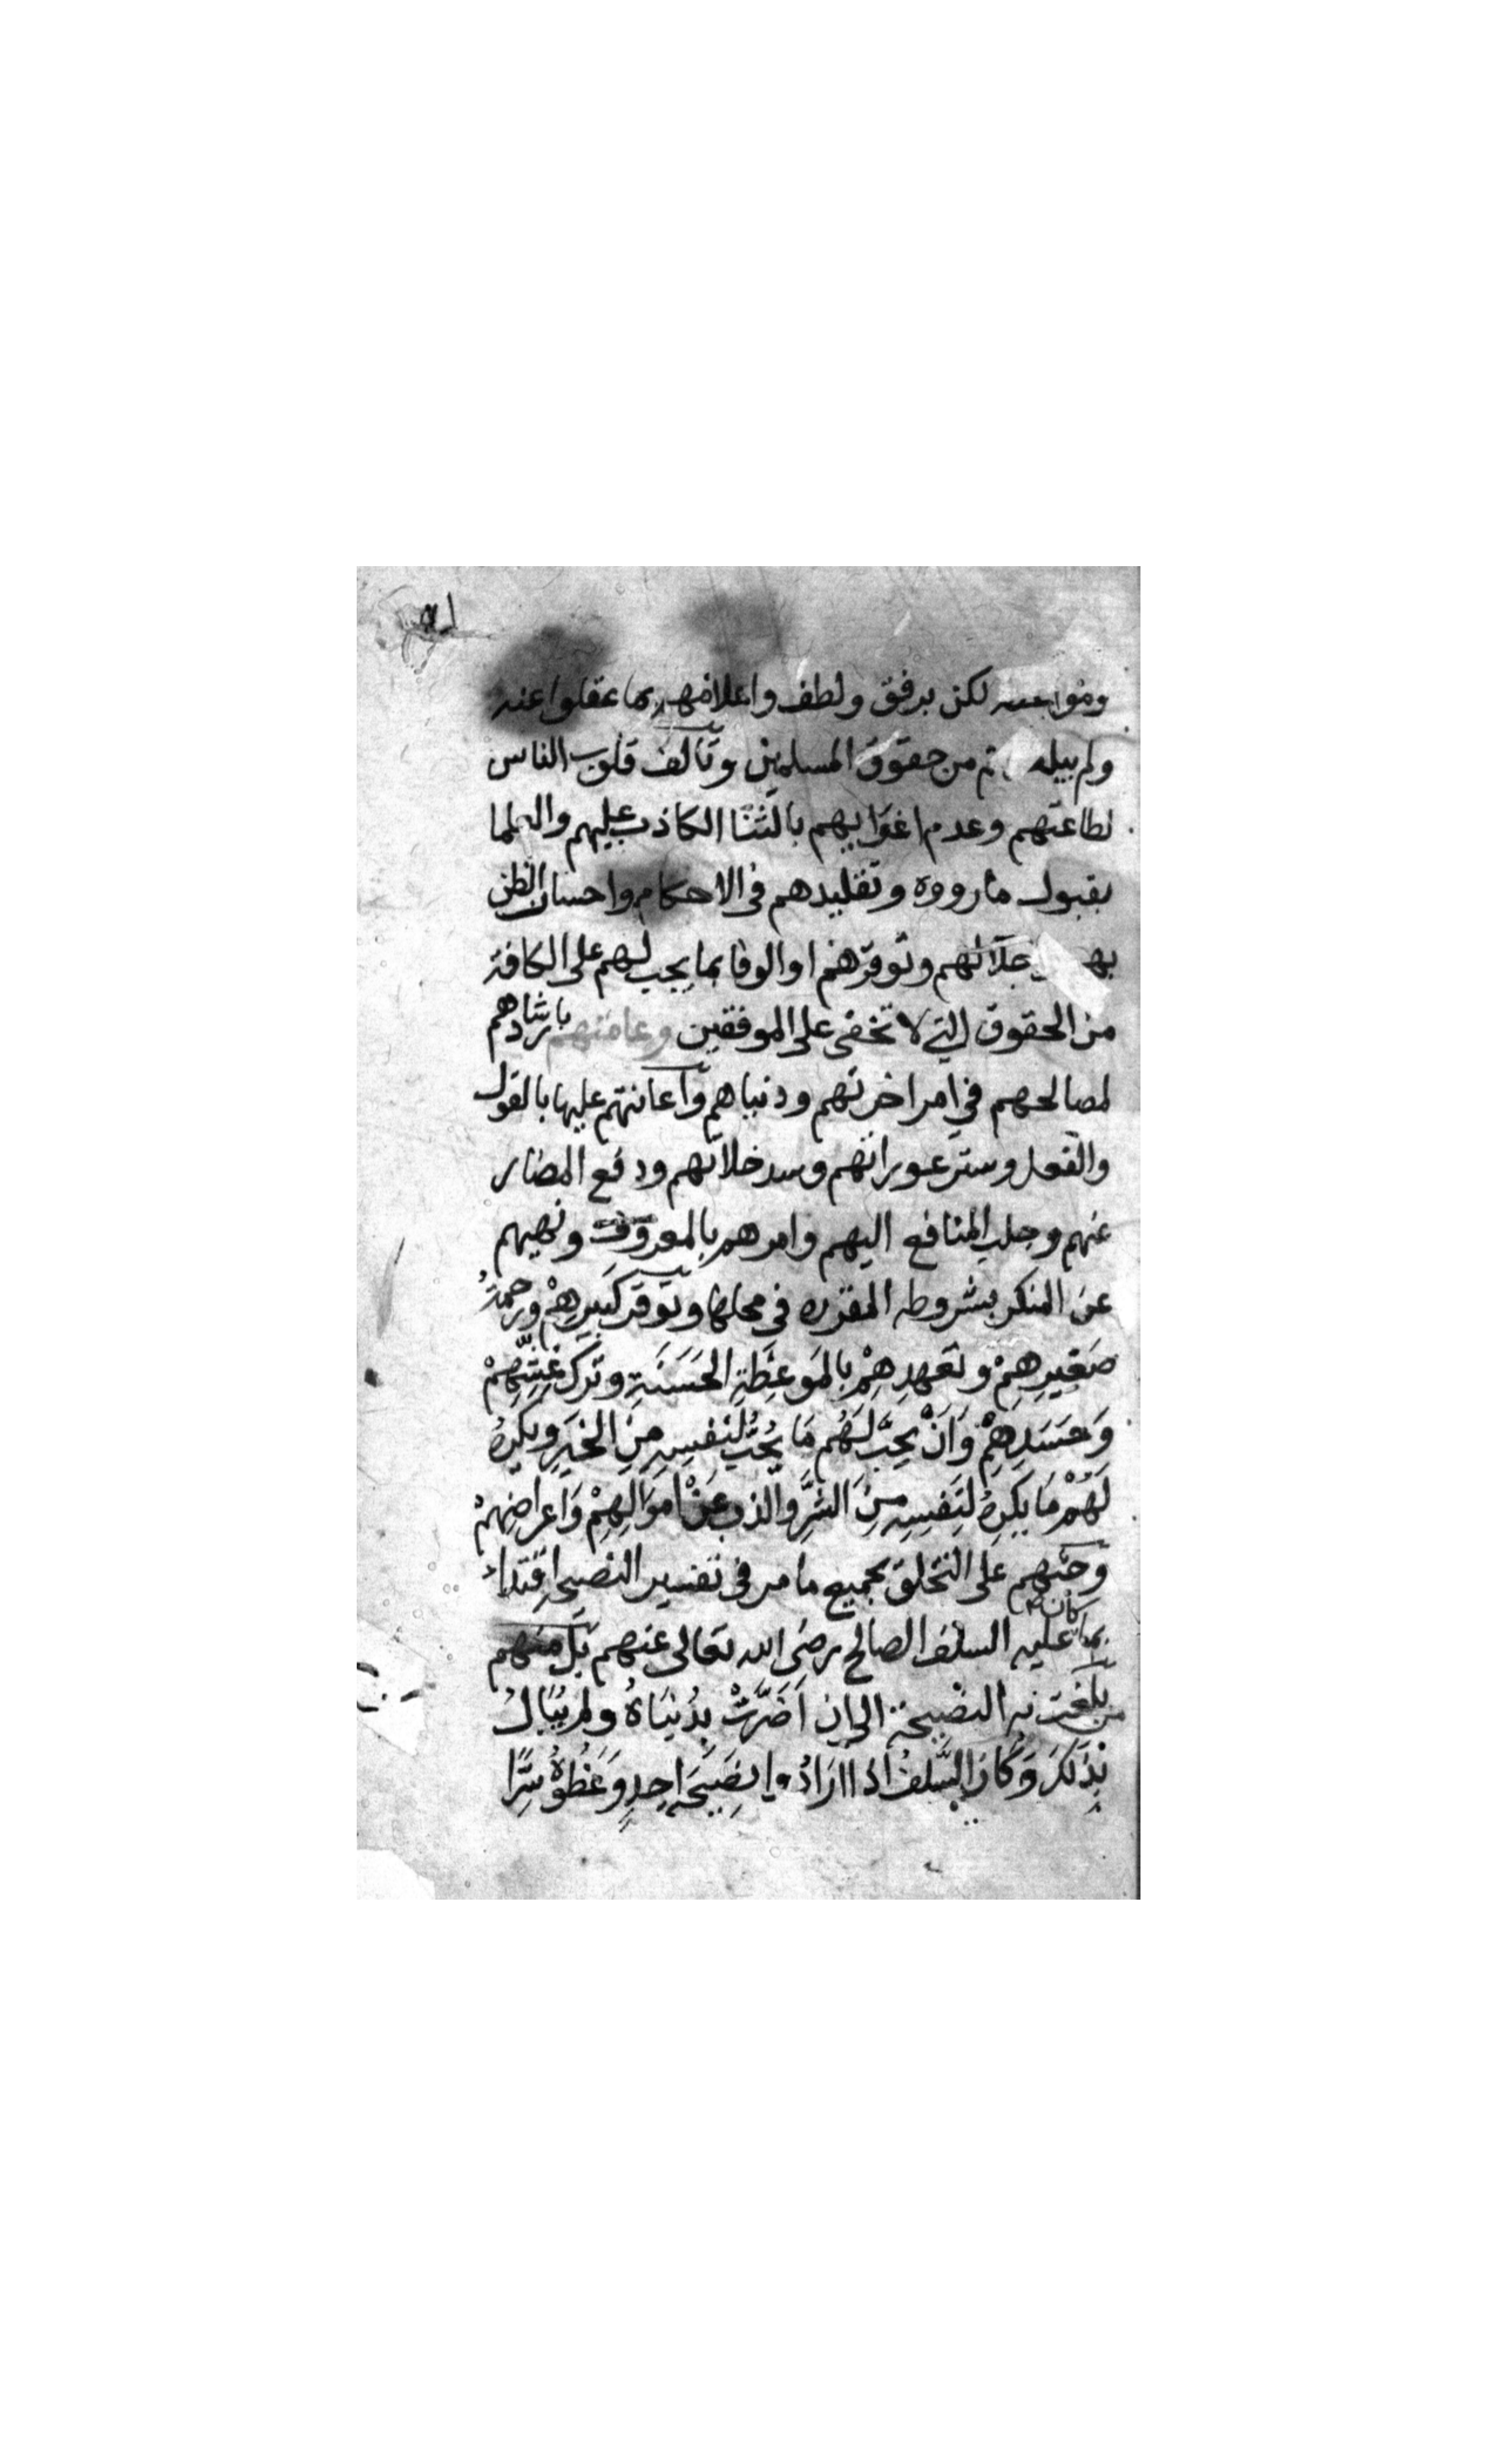 لكن برفق ولطف واعلامهم بما غفلوا عنه
ولم يبلغهم من حقوق المسلمين وتالف قلوب الناس
لطاعتهم وعدم اغوايهم بالثنا الكاذب عليهم والعلما
بقبول ما رووه وتقليدهم فى الاحكام واحسان الظن
بهم واجلالهم وتوقيرهم والوفا بما يجب لهم على الكافة
من الحقوق التي لا تخفى على الموفقين وعامتهم بارشادهم
لمصالحهم في امر اخرتهم ودنياهم واعانتهم عليها بالقول
والفعل وستر عوراتهم وسد خلاتهم ودفع المضار
عنهم وجلب المنافع اليهم وامرهم بالمعروف ونهيهم
عن المنكر بشروطه المقرره في محلها وتوقير كَبِيرِهِمْ ورحمة
صَغِيرِهِمْ وتعهدِهِمْ بالمَوعِظَةِ الحَسَنَةِ وتَرْك غِشِّهِمْ
وَحَسَدِهِمْ وَاَنْ يُحِبَّ لَهُم مَا يُحِبُّ لنفسِهِ مِنَ الخَيرِ ويكرهُ
لَهُمْ مَا يَكرهُ لنَفسِهِ مِنَ الشرِّ والذب عَنْ اموَالِهِمْ وَاعراضِهِمْ
وحثهم على التخلق بجميع ما مر فى تفسير النصيحة اقتداء
بما كان عليه السلف الصالح رضى الله تعالى عنهم بل منهم
من بلغت به النصيحة الى ان اَضَرَّتْ بِدُنيَاهُ ولم يُبَال
بِذلكَ وَكَانَ السَّلفُ اذا ارَادُوا نصِيحَة احدٍ وَعَظُوهُ سِرًّا